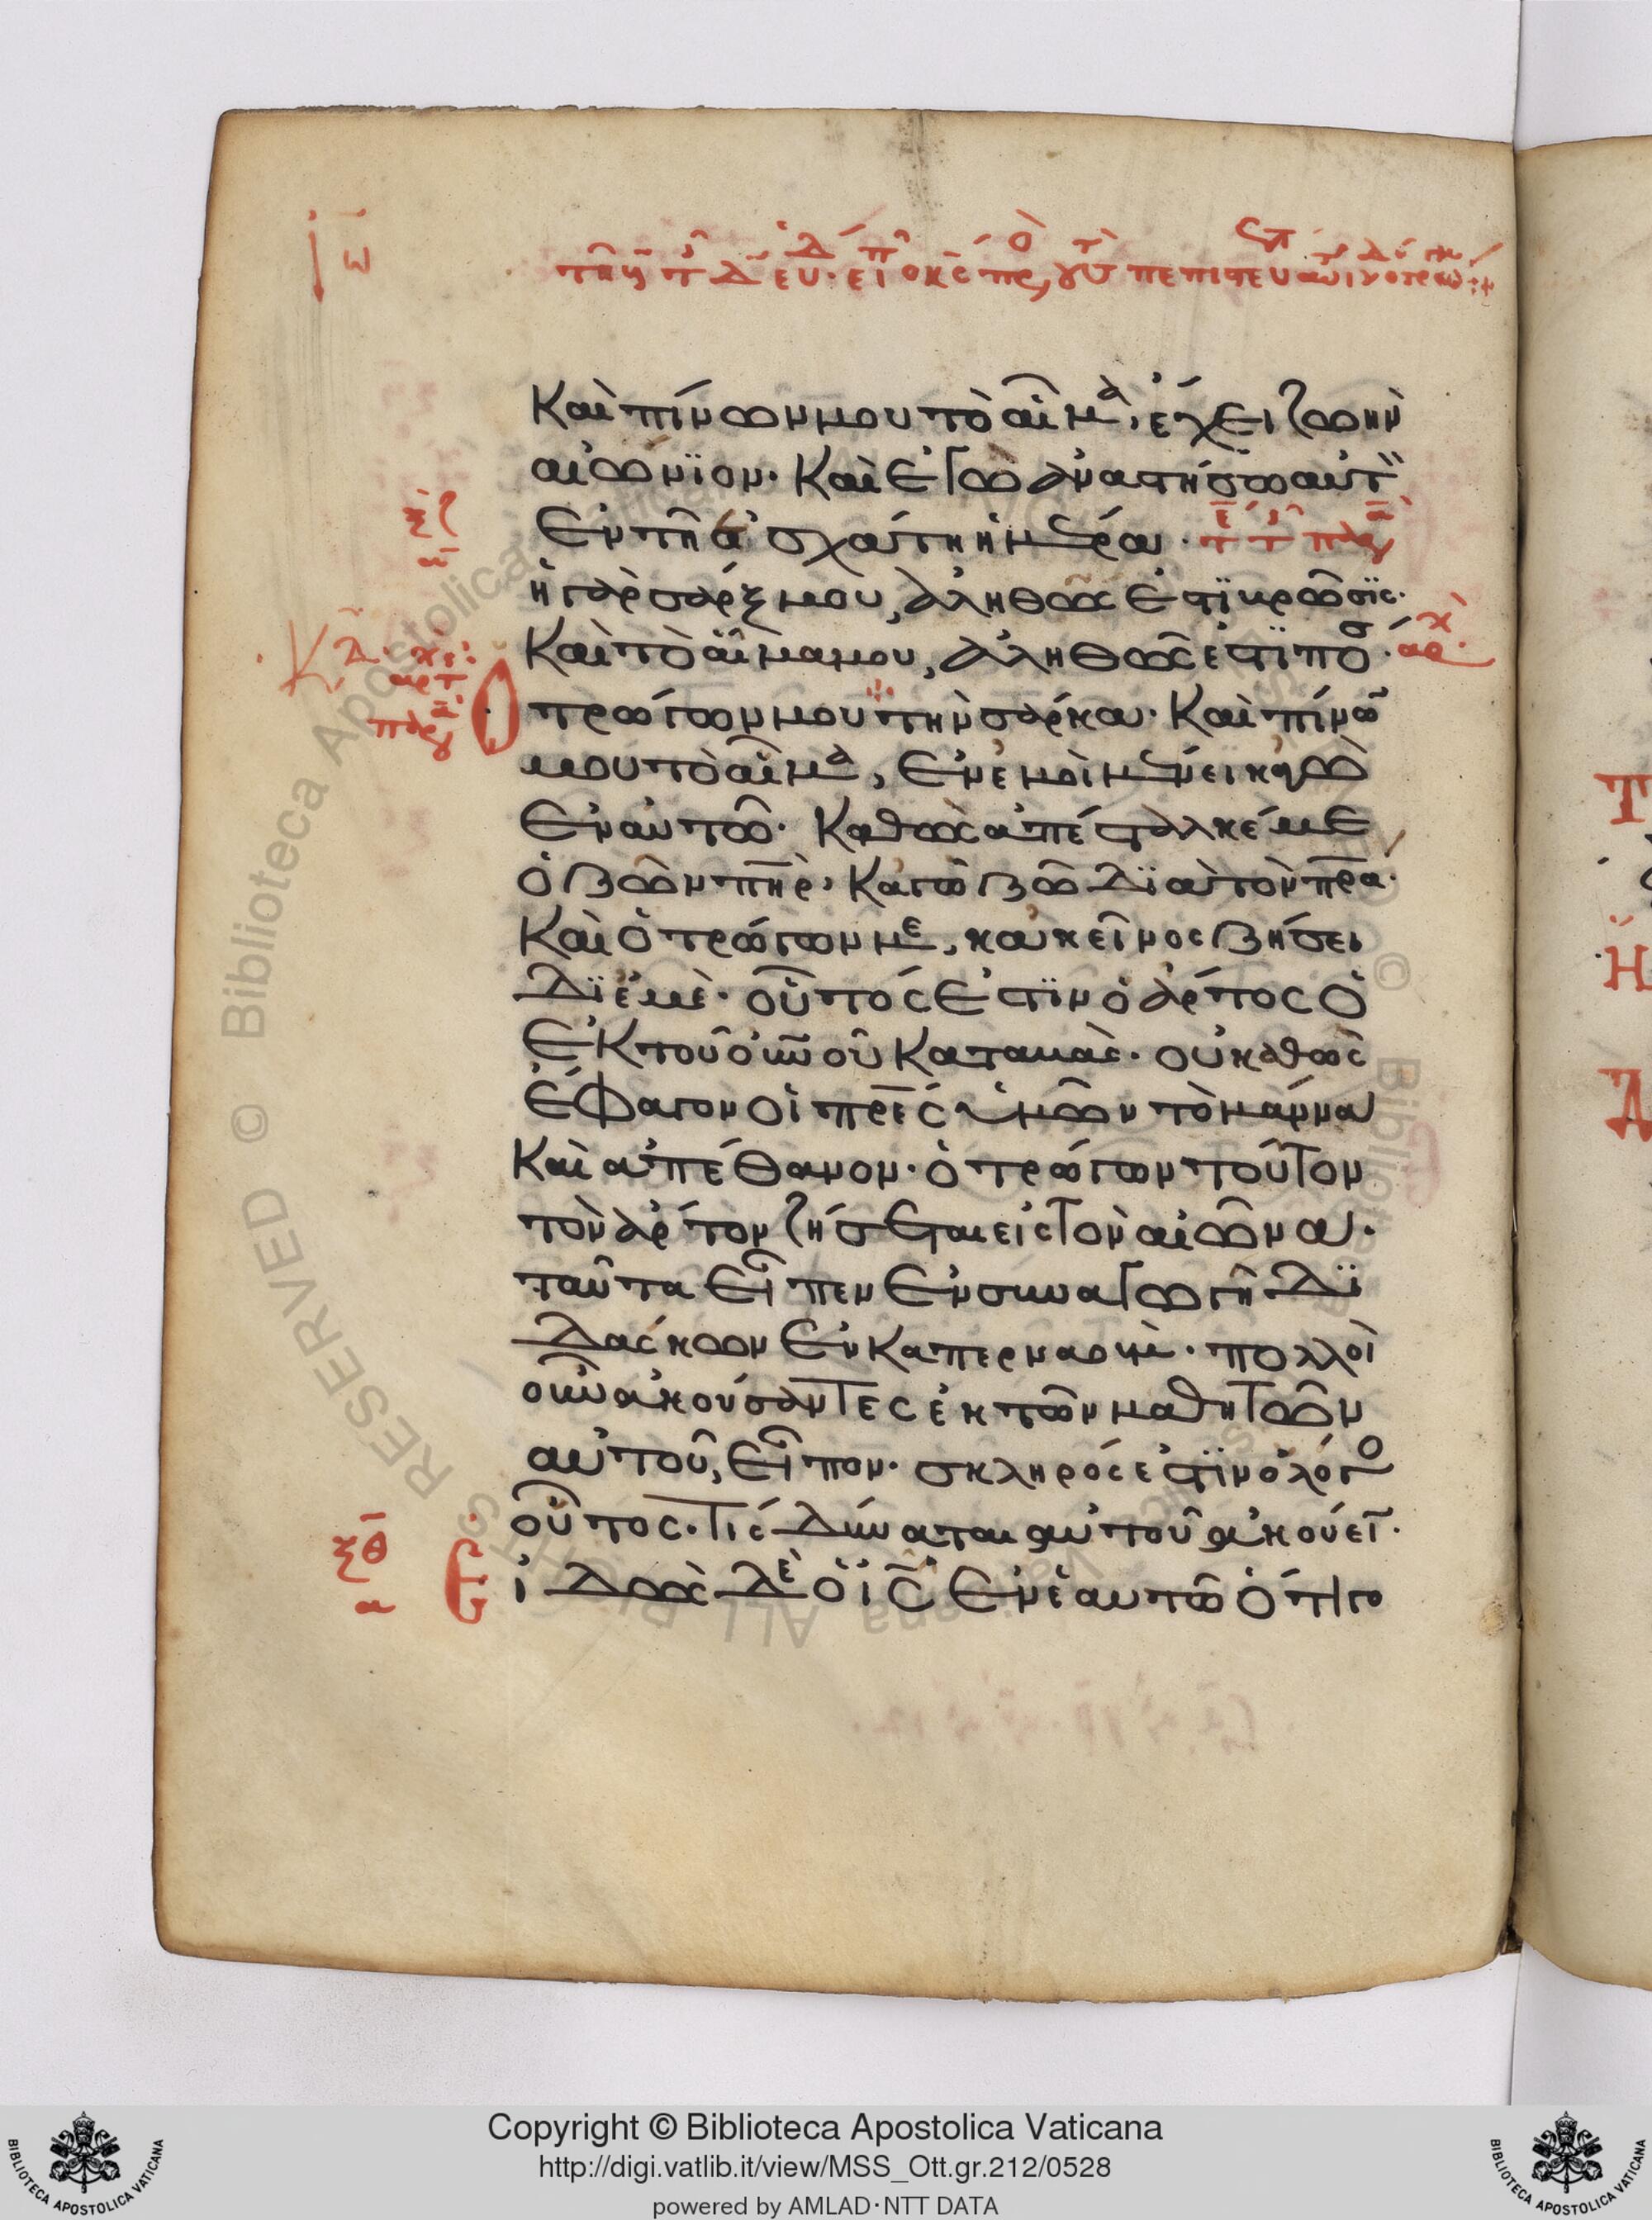 Καὶ πίνων μου τὸ αἷμα, ἔχει ζωὴν
αἰώνϊον. Καὶ ἐγὼ ἀναστήσω αὐτ
Ἐν τῆ ἐσχάτη ἡμέρα.
ἡ γὰρ σάρξ μου, ἀληθῶς ἐστϊ βρῶσϊς.
Καὶ τὸ αἷμα μου, ἀληθῶς ἐστϊ πόσ.
τρώγων μου τὴν σάρκα. Καὶ πίνω
μου τὸ αἷμα, Ἐν ἐμοὶ μένει κἀγὼ
Ἐν αὐτῶ. Καθὼς ἀπέσταλκέ με
ὁ ζῶν πηρ, Κἀγὼ ζῶ δϊὰ τὸν πρα.
Καὶ ὁ τρώγων με, κἀκεῖνος ζήσει
δϊ ἐμὲ. οὗτός ἐστϊν ὁ ἄρτος ὁ
Ἐκ τοῦ οὐνοῦ Καταβὰς. οὐ καθὼς
ἔφαγον οἱ πρες ὑμῶν τὸ μάννα
Καὶ ἀπέθανον. ὁ τρώγων τοῦτον
τὸν ἄρτον ζήσεται εἰς τὸν αἰῶνα.
ταῦτα εἶπεν Ἐν συναγωγῆ δϊ
δάσκων Ἐν Καπερναοὺμ. πολλοὶ
οὖν ἀκούσαντες ἐκ τῶν μαθητῶν
αὐτοῦ, εἶπον. σκληρός ἐστϊν ὁ λόγο
οὗτος. Τίς δύναται αὐτοῦ ἀκούει.
ξθ
α
ἰδὼς δὲ ὁ ις Ἐν ἑαυτῶ ὅτι γο
Copyright © Biblioteca Apostolica Vaticana
http://digi.vatlib.it/view/MSS_Ott.gr.212/0528
powered by AMLAD·NTT DATA
BIBLIOTECA APOSTOLICA VATICANA
BIBLIOTECA APOSTOLICA VATICANA